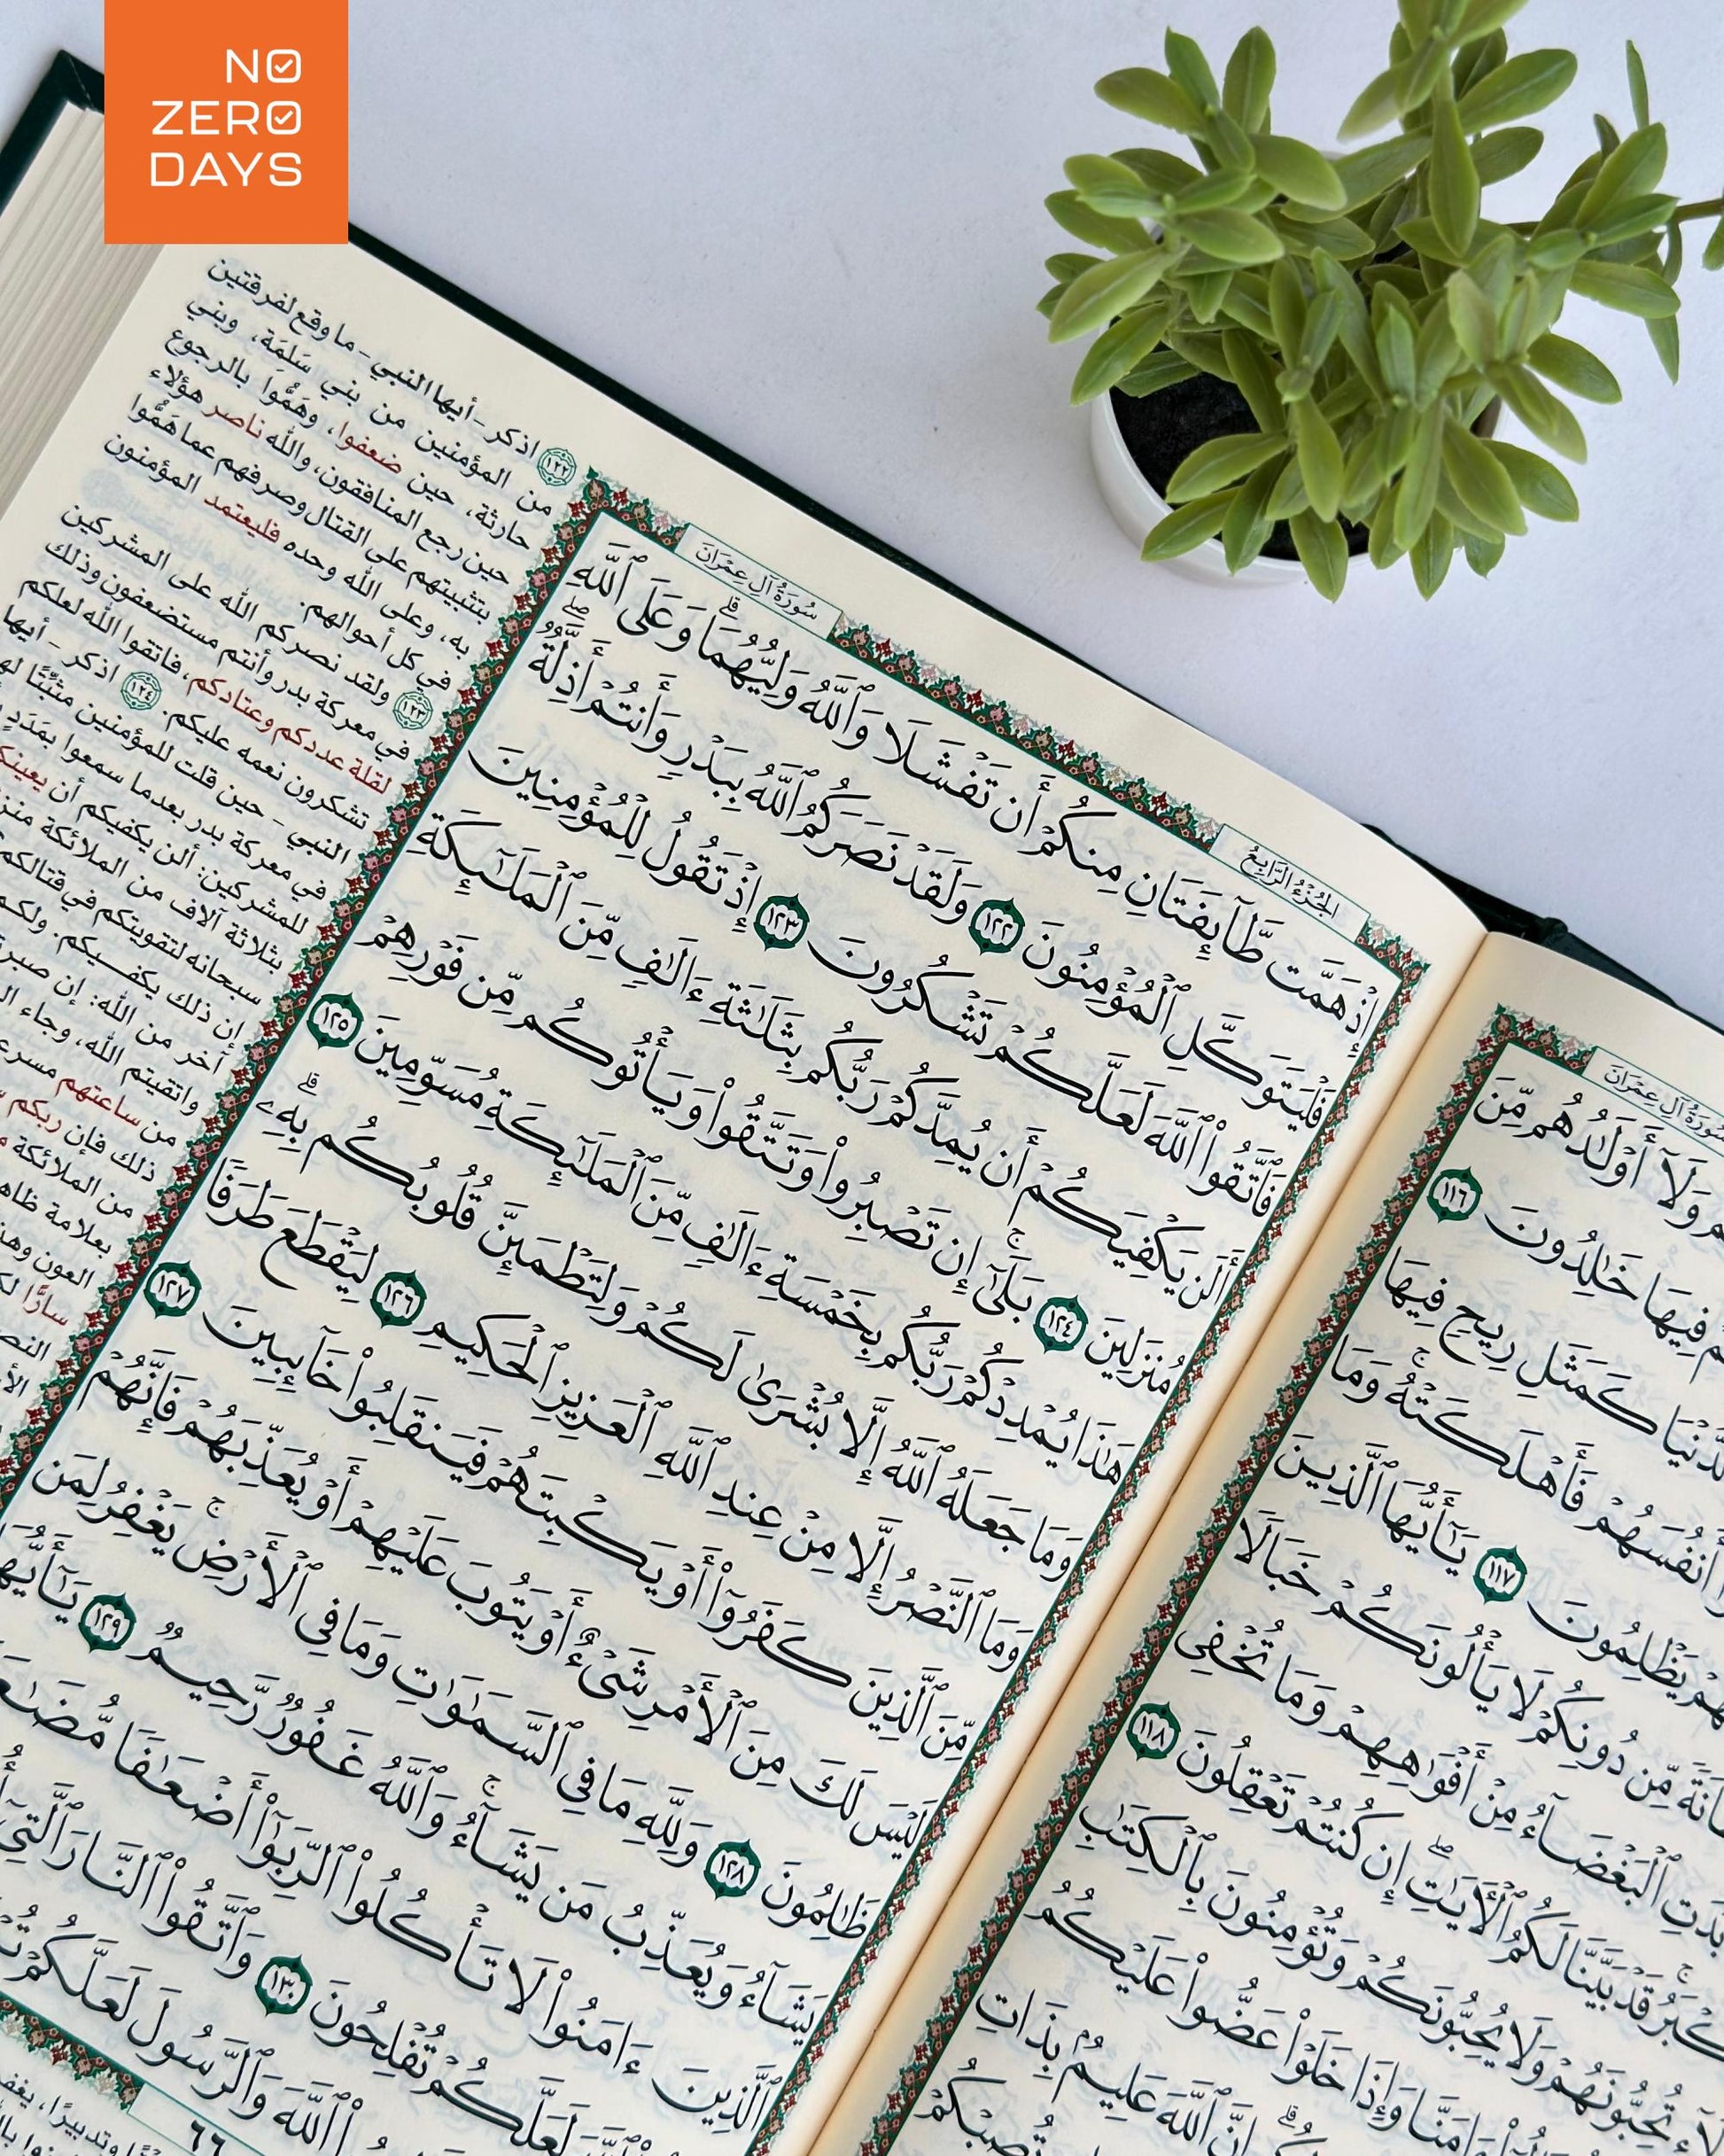 NO
ZERO
DAYS
سُورَةُ آلِ عِمۡرَانَ
الجُزۡءُ الرَّابِعُ
إِذۡ هَمَّت طَّآئِفَتَانِ مِنكُمۡ أَن تَفۡشَلَا وَٱللَّهُ وَلِيُّهُمَاۗ وَعَلَى ٱللَّهِ
فَلۡيَتَوَكَّلِ ٱلۡمُؤۡمِنُونَ ١٢٢ وَلَقَدۡ نَصَرَكُمُ ٱللَّهُ بِبَدۡرٖ وَأَنتُمۡ أَذِلَّةٞۖ
فَٱتَّقُواْ ٱللَّهَ لَعَلَّكُمۡ تَشۡكُرُونَ ١٢٣ إِذۡ تَقُولُ لِلۡمُؤۡمِنِينَ
أَلَن يَكۡفِيَكُمۡ أَن يُمِدَّكُمۡ رَبُّكُم بِثَلَٰثَةِ ءَالَٰفٖ مِّنَ ٱلۡمَلَٰٓئِكَةِ
مُنزَلِينَ ١٢٤ بَلَىٰٓۚ إِن تَصۡبِرُواْ وَتَتَّقُواْ وَيَأۡتُوكُم مِّن فَوۡرِهِمۡ
هَٰذَا يُمۡدِدۡكُمۡ رَبُّكُم بِخَمۡسَةِ ءَالَٰفٖ مِّنَ ٱلۡمَلَٰٓئِكَةِ مُسَوِّمِينَ ١٢٥
وَمَا جَعَلَهُ ٱللَّهُ إِلَّا بُشۡرَىٰ لَكُمۡ وَلِتَطۡمَئِنَّ قُلُوبُكُم بِهِۦۗ
وَمَا ٱلنَّصۡرُ إِلَّا مِنۡ عِندِ ٱللَّهِ ٱلۡعَزِيزِ ٱلۡحَكِيمِ ١٢٦ لِيَقۡطَعَ طَرَفٗا
مِّنَ ٱلَّذِينَ كَفَرُوٓاْ أَوۡ يَكۡبِتَهُمۡ فَيَنقَلِبُواْ خَآئِبِينَ ١٢٧
لَيۡسَ لَكَ مِنَ ٱلۡأَمۡرِ شَيۡءٌ أَوۡ يَتُوبَ عَلَيۡهِمۡ أَوۡ يُعَذِّبَهُمۡ فَإِنَّهُمۡ
ظَٰلِمُونَ ١٢٨ وَلِلَّهِ مَا فِي ٱلسَّمَٰوَٰتِ وَمَا فِي ٱلۡأَرۡضِۚ يَغۡفِرُ لِمَن
يَشَآءُ وَيُعَذِّبُ مَن يَشَآءُۚ وَٱللَّهُ غَفُورٞ رَّحِيمٞ ١٢٩ يَٰٓأَيُّهَا
ٱلَّذِينَ ءَامَنُواْ لَا تَأۡكُلُواْ ٱلرِّبَوٰٓاْ أَضۡعَٰفٗا
لَعَلَّكُمۡ تُفۡلِحُونَ ١٣٠ وَٱتَّقُواْ ٱلنَّارَ ٱلَّتِيٓ
ٱللَّهَ وَٱلرَّسُولَ لَعَلَّكُمۡ
٦٦
١٢٢ اذكر -أيها النبي- ما وقع لفرقتين
من المؤمنين من بني سَلِمَة، وبني
حارثة، حين ضعفوا، وهَمُّوا بالرجوع
حين رجع المنافقون، والله ناصر هؤلاء
بتثبيتهم على القتال وصرفهم عما هَمُّوا
به، وعلى الله وحده فليعتمد المؤمنون
في كل أحوالهم.
١٢٣ ولقد نصركم الله على المشركين
في معركة بدر وأنتم مستضعفون وذلك
لقلة عددكم وعتادكم، فاتقوا الله لعلكم
تشكرون نعمه عليكم. ١٢٤ اذكر -أيها
النبي- حين قلت للمؤمنين مثبِّتًا
في معركة بدر بعدما سمعوا بمَدَدٍ
للمشركين: ألن يكفيكم أن
بثلاثة آلاف من الملائكة
سبحانه لتقويتكم في قتالكم
إن ذلك يكفيكم. ولكم
آخر من الله: إن
واتقيتم الله، وجاء
من ساعتهم
ذلك فإن ربكم
من الملائكة
بعلامة
العون
سارًّا
سُورَةُ آلِ عِمۡرَانَ
وَلَآ أَوۡلَٰدُهُم مِّنَ
فِيهَا خَٰلِدُونَ ١١٦
كَمَثَلِ رِيحٖ فِيهَا
أَنفُسَهُمۡ فَأَهۡلَكَتۡهُۚ وَمَا
يَظۡلِمُونَ ١١٧ يَٰٓأَيُّهَا ٱلَّذِينَ
مِّن دُونِكُمۡ لَا يَأۡلُونَكُمۡ خَبَالٗا
بَدَتِ ٱلۡبَغۡضَآءُ مِنۡ أَفۡوَٰهِهِمۡ وَمَا تُخۡفِي
قَدۡ بَيَّنَّا لَكُمُ ٱلۡأٓيَٰتِۖ إِن كُنتُمۡ تَعۡقِلُونَ ١١٨
تُحِبُّونَهُمۡ وَلَا يُحِبُّونَكُمۡ وَتُؤۡمِنُونَ بِٱلۡكِتَٰبِ
ءَامَنَّا وَإِذَا خَلَوۡاْ عَضُّواْ عَلَيۡكُمُ
إِنَّ ٱللَّهَ عَلِيمُۢ بِذَاتِ